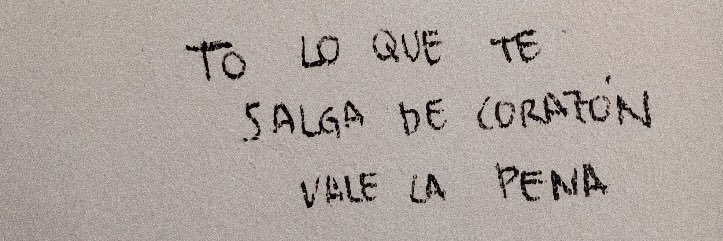 TO LO QUE TE
SALGA DE CORAZÓN
VALE LA PENA